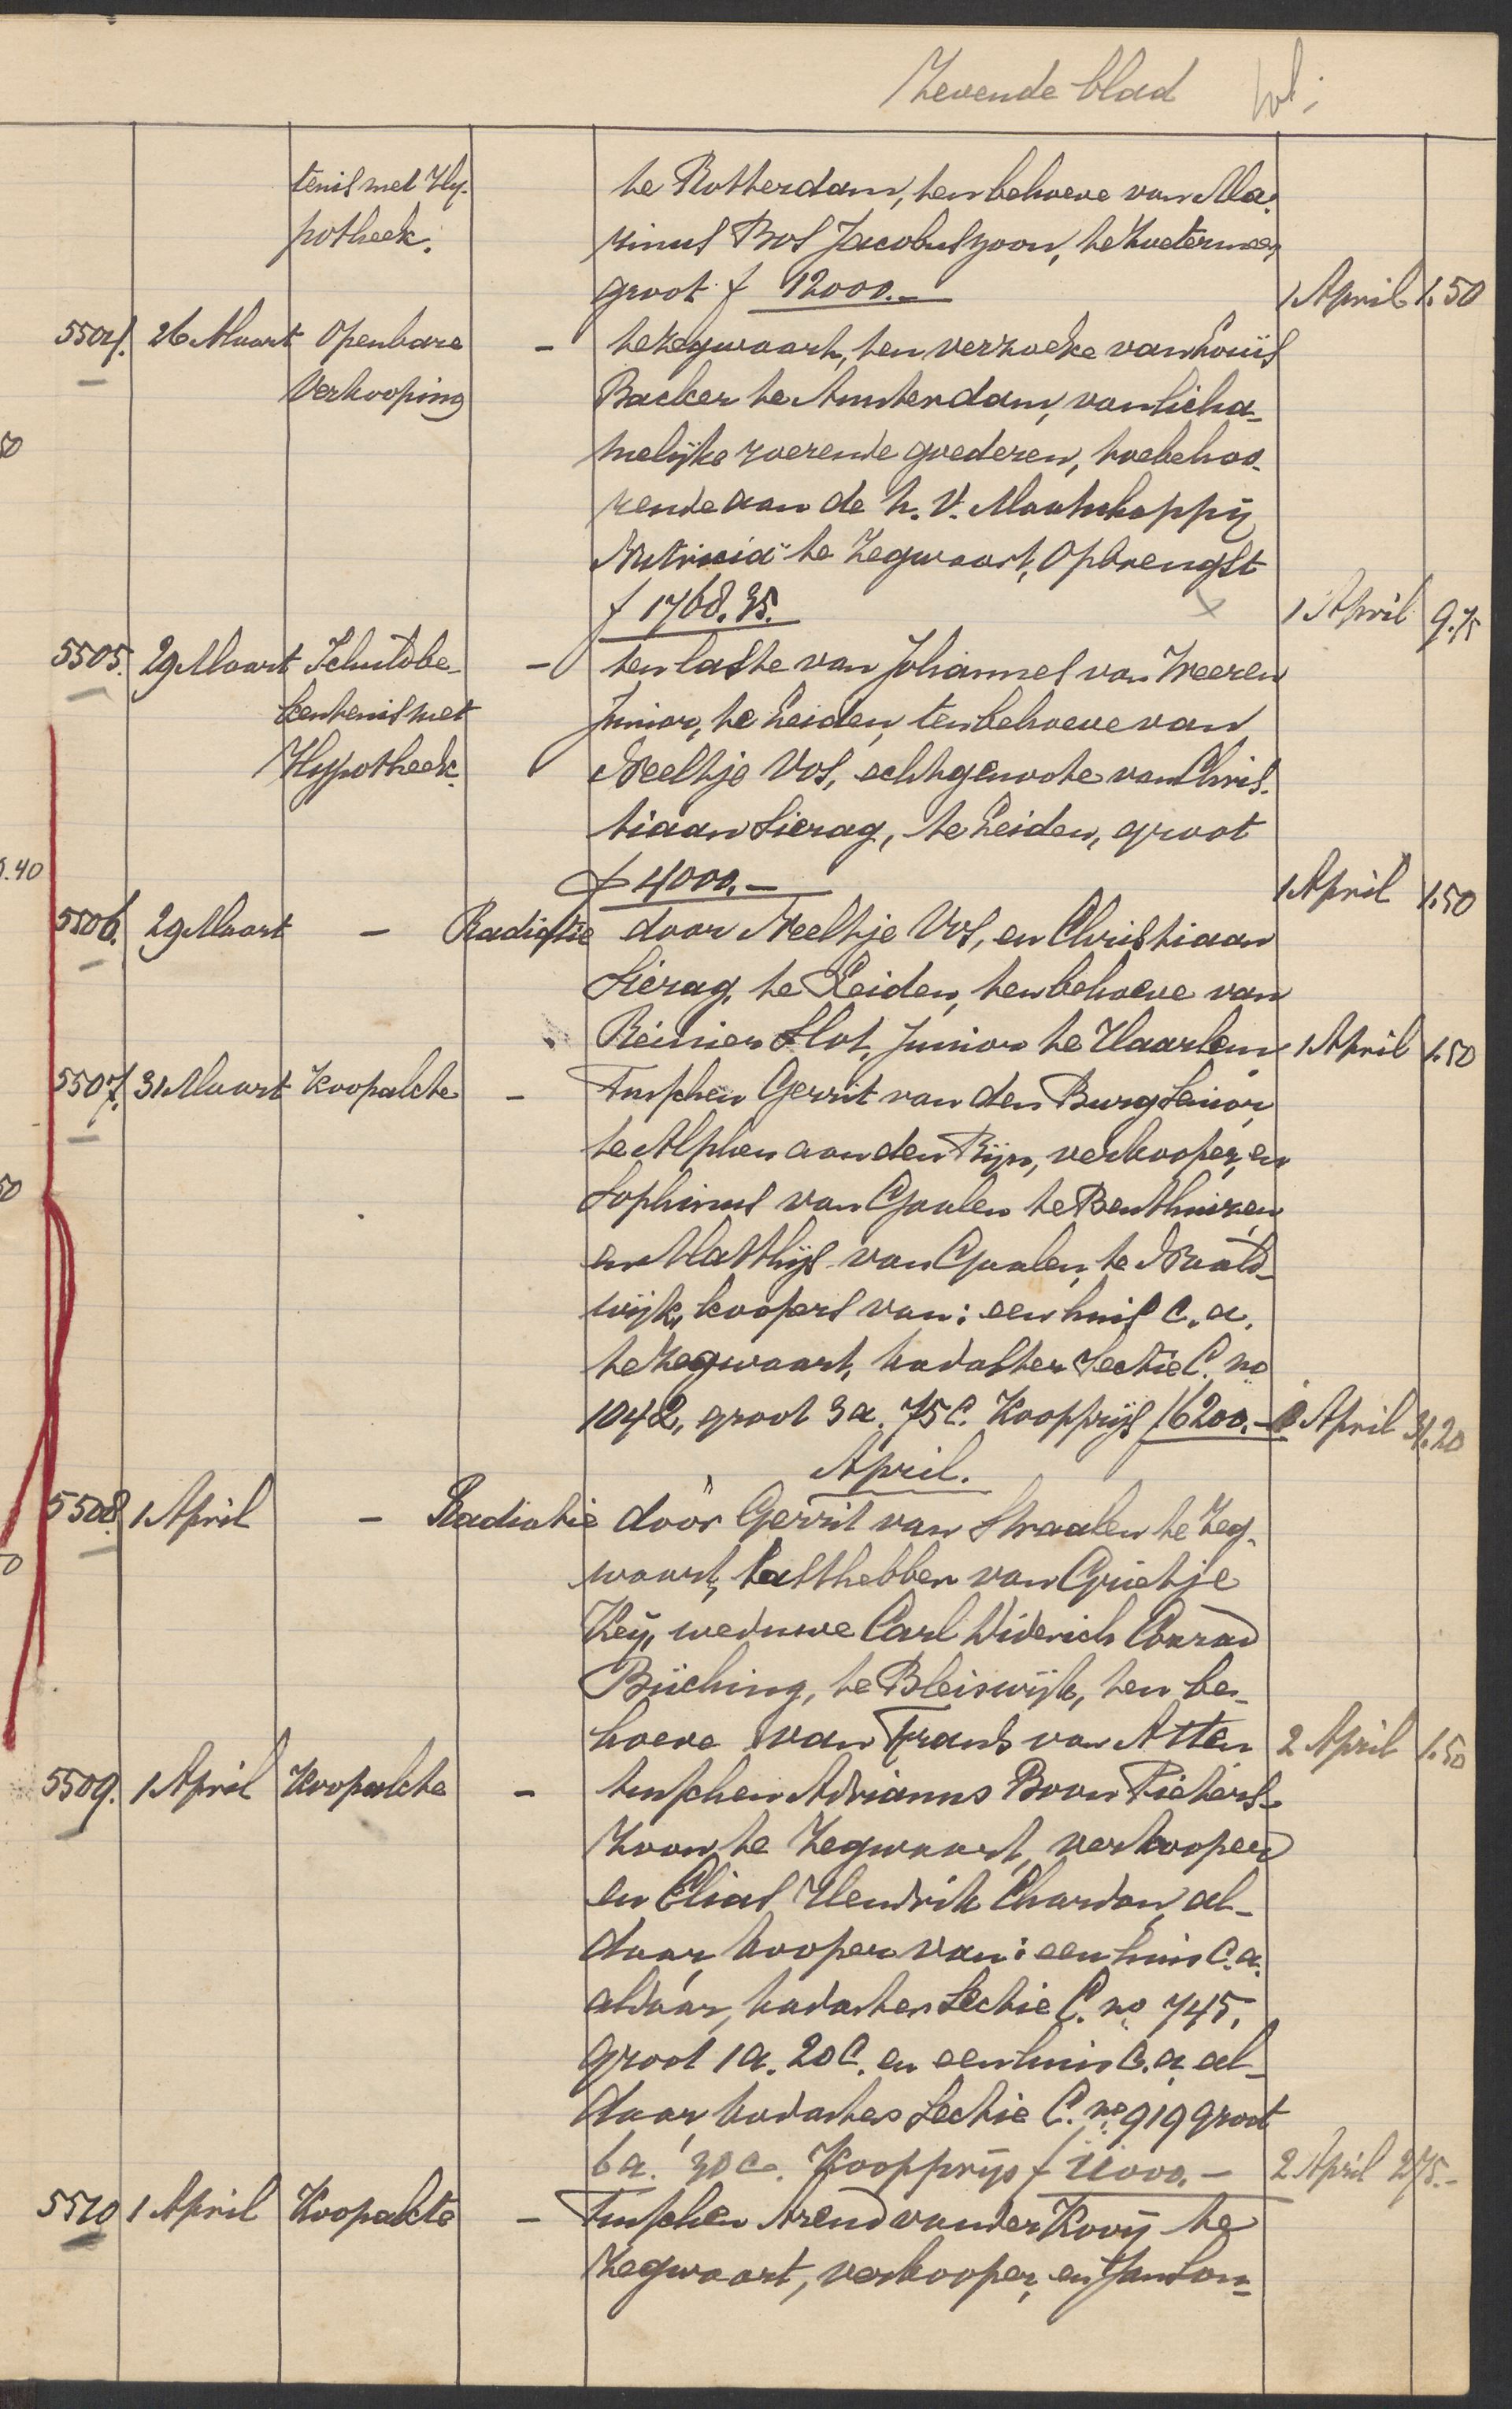 Zevende blad
tenis met Hy- te Rotterdam, ten behoeve van Ma-
potheek. rinus Bos Jacobuszoon, te Zoetermeer,
groot f 12000.- 1 April 1.50
5504. 26 Maart Openbare - te Zegwaart, ten verzoeke van Louis
Verkooping Backer te Amsterdam, van licha-
melijke roerende goederen, toebehoo-
rende aan de N.V. Maatschappij
Nutricia" te Zegwaart, Opbrengst
f 1768.35. 1 April 9.75
5505. 29 Maart Schuldbe- - ten laste van Johannes van Weeren
kentenis met Junior, te Leiden, ten behoeve van
Hypotheek. Neeltje Vos, echtgenoote van Chris-
tiaan Sierag, te Leiden, groot
f 4000.- 1 April 1.50
5506. 29 Maart - Radiatie door Neeltje Vos, en Christiaan
Sierag, te Leiden, ten behoeve van
Reinier Slot, Junior te Haarlem 1 April 1.50
5507. 31 Maart Koopakte - Tusschen Gerrit van den Burg Senior,
te Alphen aan den Rijn, verkooper, en
Sophinus van Gaalen te Benthuizen
en Matthijs van Gaalen, te Naald-
wijk, koopers van: een huis c.a.
te Zegwaart, kadaster Sectie C. no
1042, groot 3 a. 75 c. Koopprijs f 6200.- April 31.20
April.
5508. 1 April - Radiatie door Gerrit van Straalen te Zeg-
waart, lasthebber van Grietje
Key, weduwe Carl Diderich Conrad
Büching, te Bleiswijk, ten be-
hoeve van Frans van Atten 2 April 1.50
5509. 1 April Koopakte - tusschen Adrianus Boon Pieters-
zoon, te Zegwaart, verkooper
en Elias Hendrik Chardon, al-
daar, kooper van: een huis c.a.
aldaar, kadaster Sectie C. no 745,
groot 1 a. 20 c. en een huis c.a. al-
daar, kadaster Sectie C. no 919 groot
6 a. 30 c. Koopprijs f 11000.- 2 April 275.-
5510 1 April Koopakte - Tusschen Arend van der Kooij te
Zegwaart, verkooper, en Jan Lon-